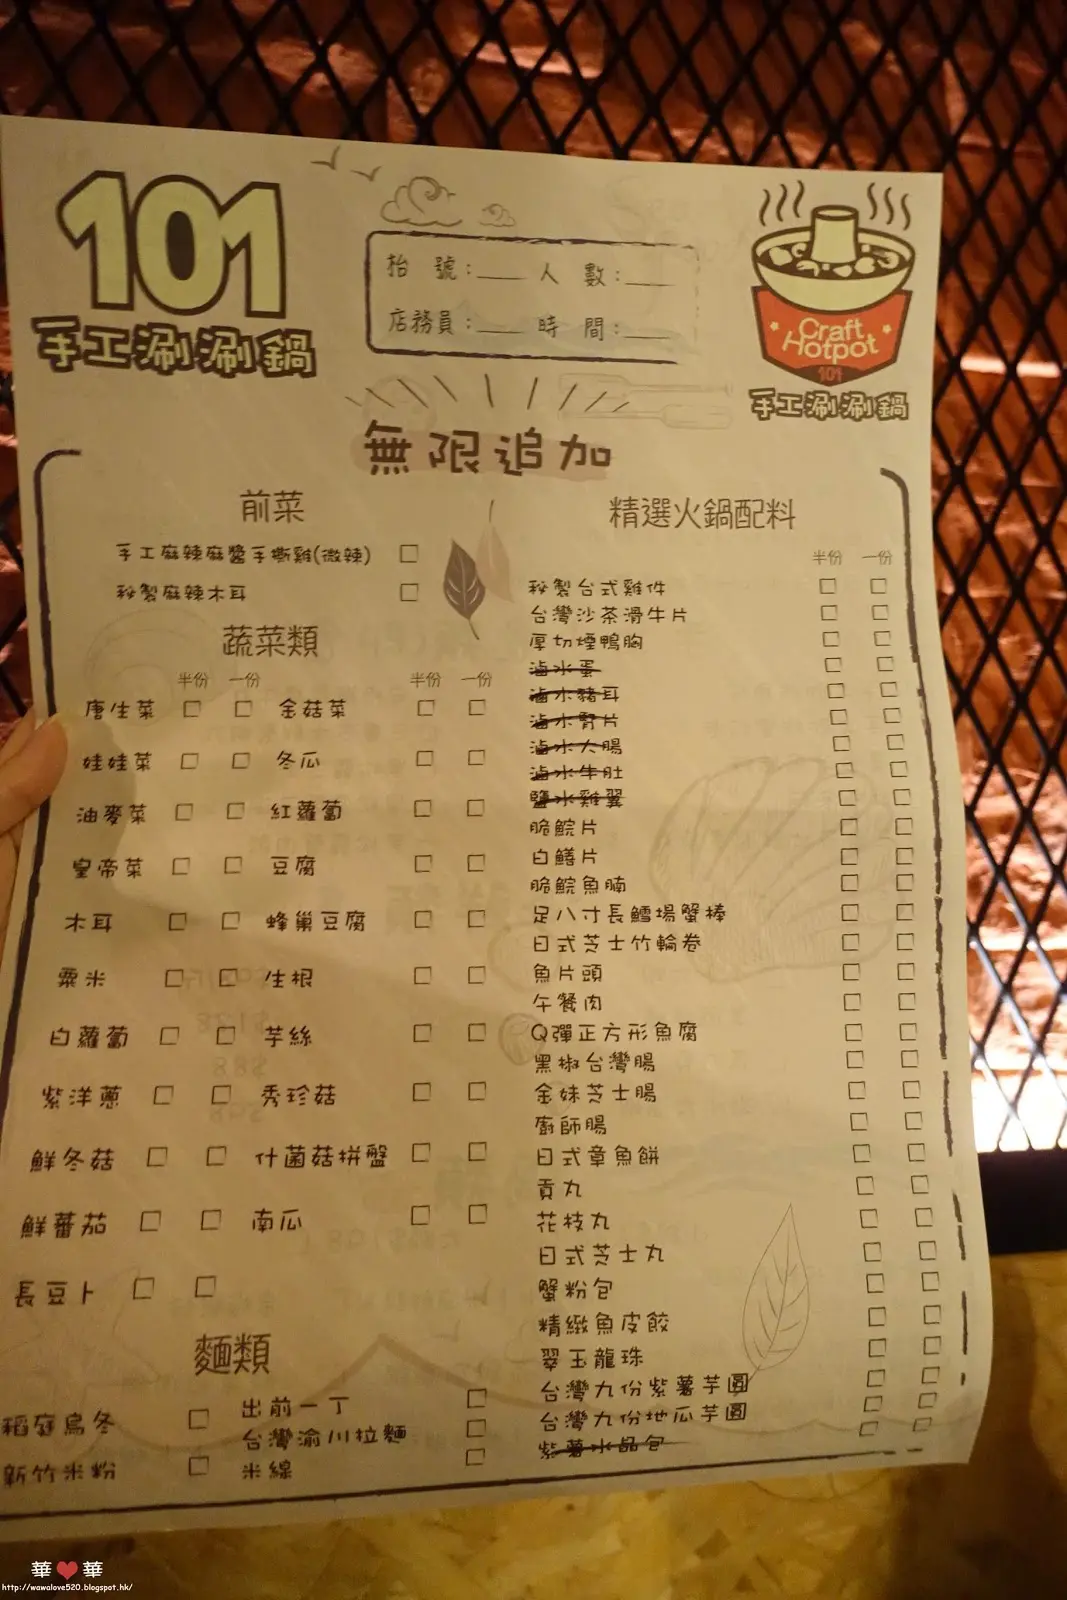 101
手工涮涮鍋
枱號：___ 人數：___
店務員：___ 時間：___
Craft
Hotpot
101
手工涮涮鍋
無限追加
前菜
手工麻辣麻醬手撕雞(微辣)
秘製麻辣木耳
蔬菜類
半份 一份 半份 一份
唐生菜 金菇菜
娃娃菜 冬瓜
油麥菜 紅蘿蔔
皇帝菜 豆腐
木耳 蜂巢豆腐
粟米 生根
白蘿蔔 芋絲
紫洋蔥 秀珍菇
鮮冬菇 什菌菇拼盤
鮮蕃茄 南瓜
長豆卜
麵類
稻庭烏冬 出前一丁
台灣渝川拉麵
新竹米粉 米線
精選火鍋配料
半份 一份
秘製台式雞件
台灣沙茶滑牛片
厚切煙鴨胸
滷水蛋
滷水豬耳
滷水腎片
滷水大腸
滷水牛肚
鹽水雞翼
脆鯇片
白鱔片
脆鯇魚腩
足八寸長鱈場蟹棒
日式芝士竹輪卷
魚片頭
午餐肉
Q彈正方形魚腐
黑椒台灣腸
金妹芝士腸
廚師腸
日式章魚餅
貢丸
花枝丸
日式芝士丸
蟹粉包
精緻魚皮餃
翠玉龍珠
台灣九份紫薯芋圓
台灣九份地瓜芋圓
紫薯水晶包
華❤華
http://wawalove520.blogspot.hk/